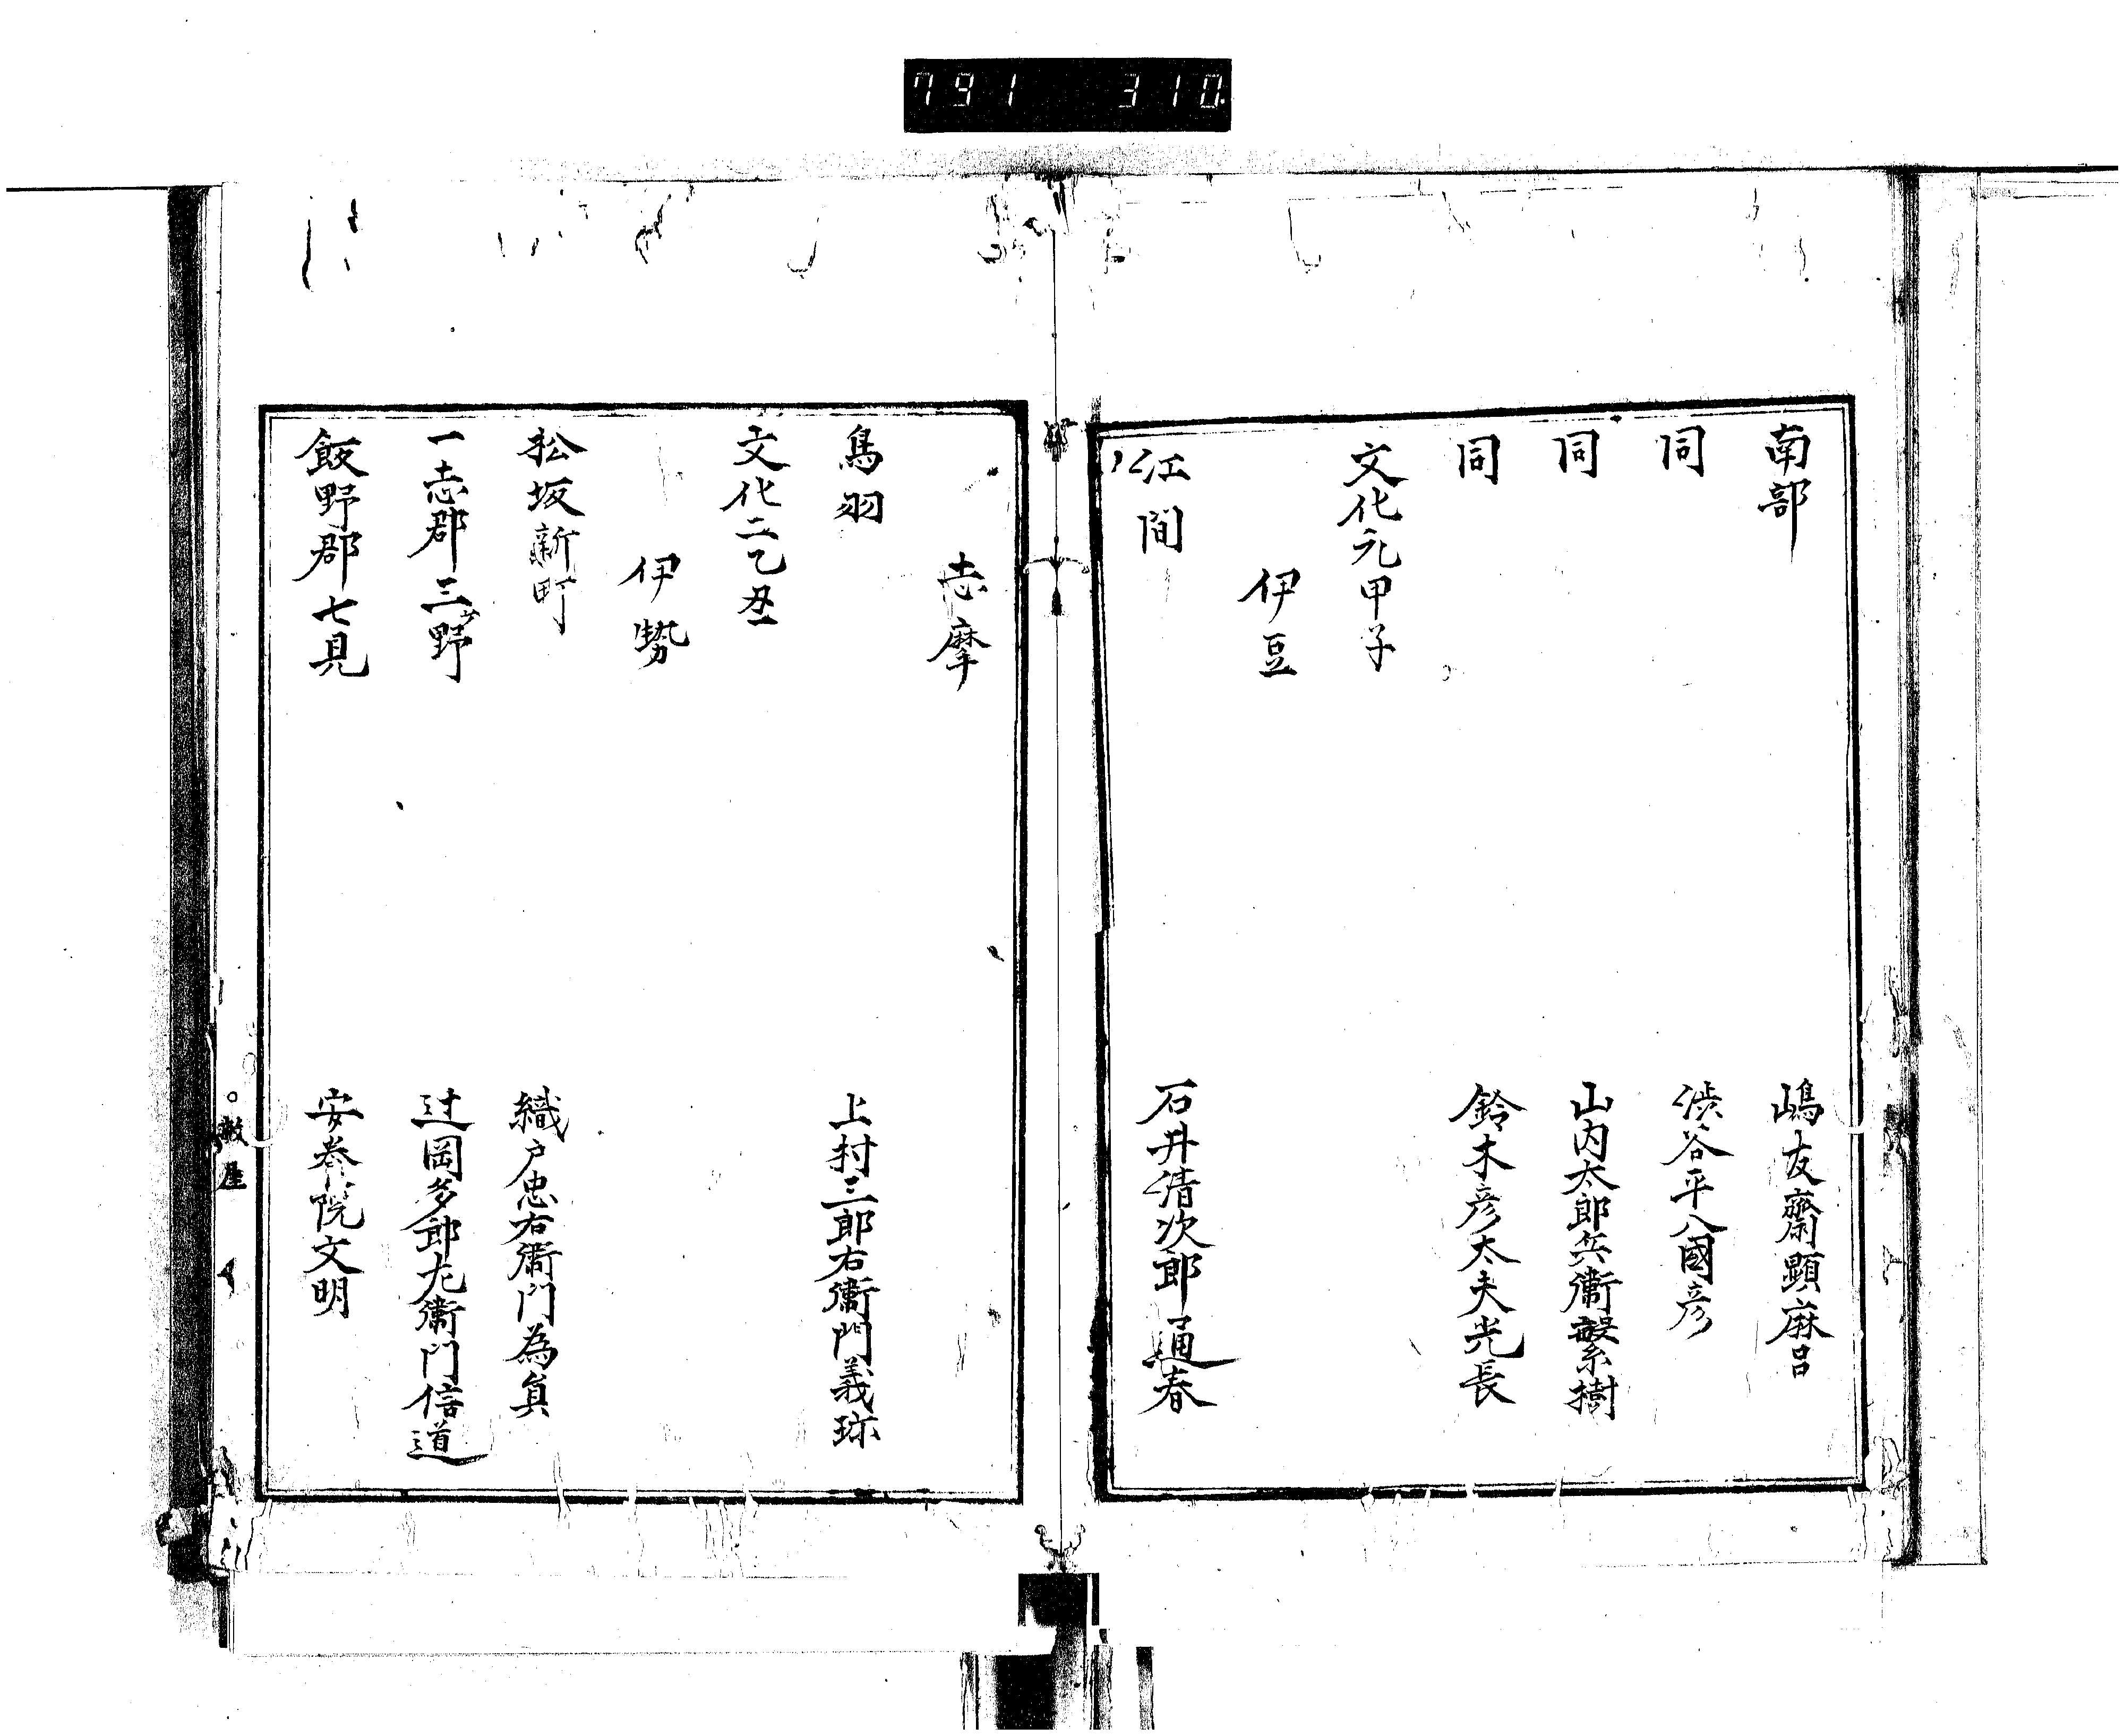 791 310
南部 嶋友齋顕麻呂
同 渋谷平八國彦
同 山内太郎兵衛繋樹
同 鈴木彦太夫光長
文化元甲子
伊豆
江間 石井清次郎通春
志摩
鳥羽 上村三郎右衛門義珎
文化二乙丑
伊勢
松坂新町 織戸忠右衛門為貟
一志郡三野 辻岡多郎左衛門信道
飯野郡七見 安養院文明